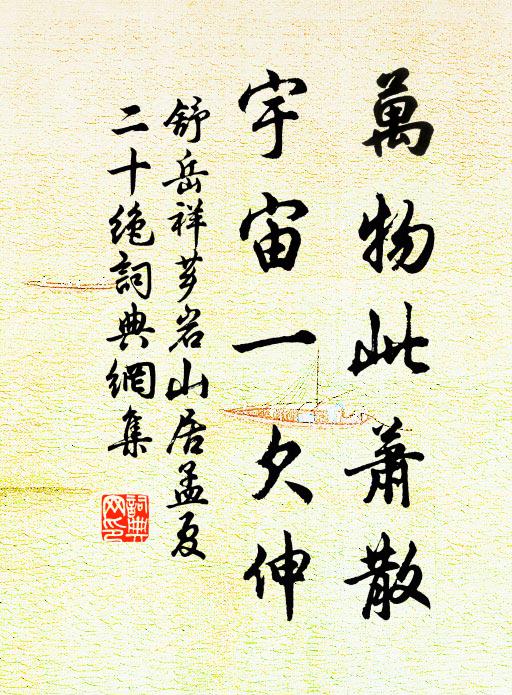 萬物此蕭散
宇宙一欠伸
舒岳祥芗岩山居孟夏
二十絕詞典網集
詞典
网印